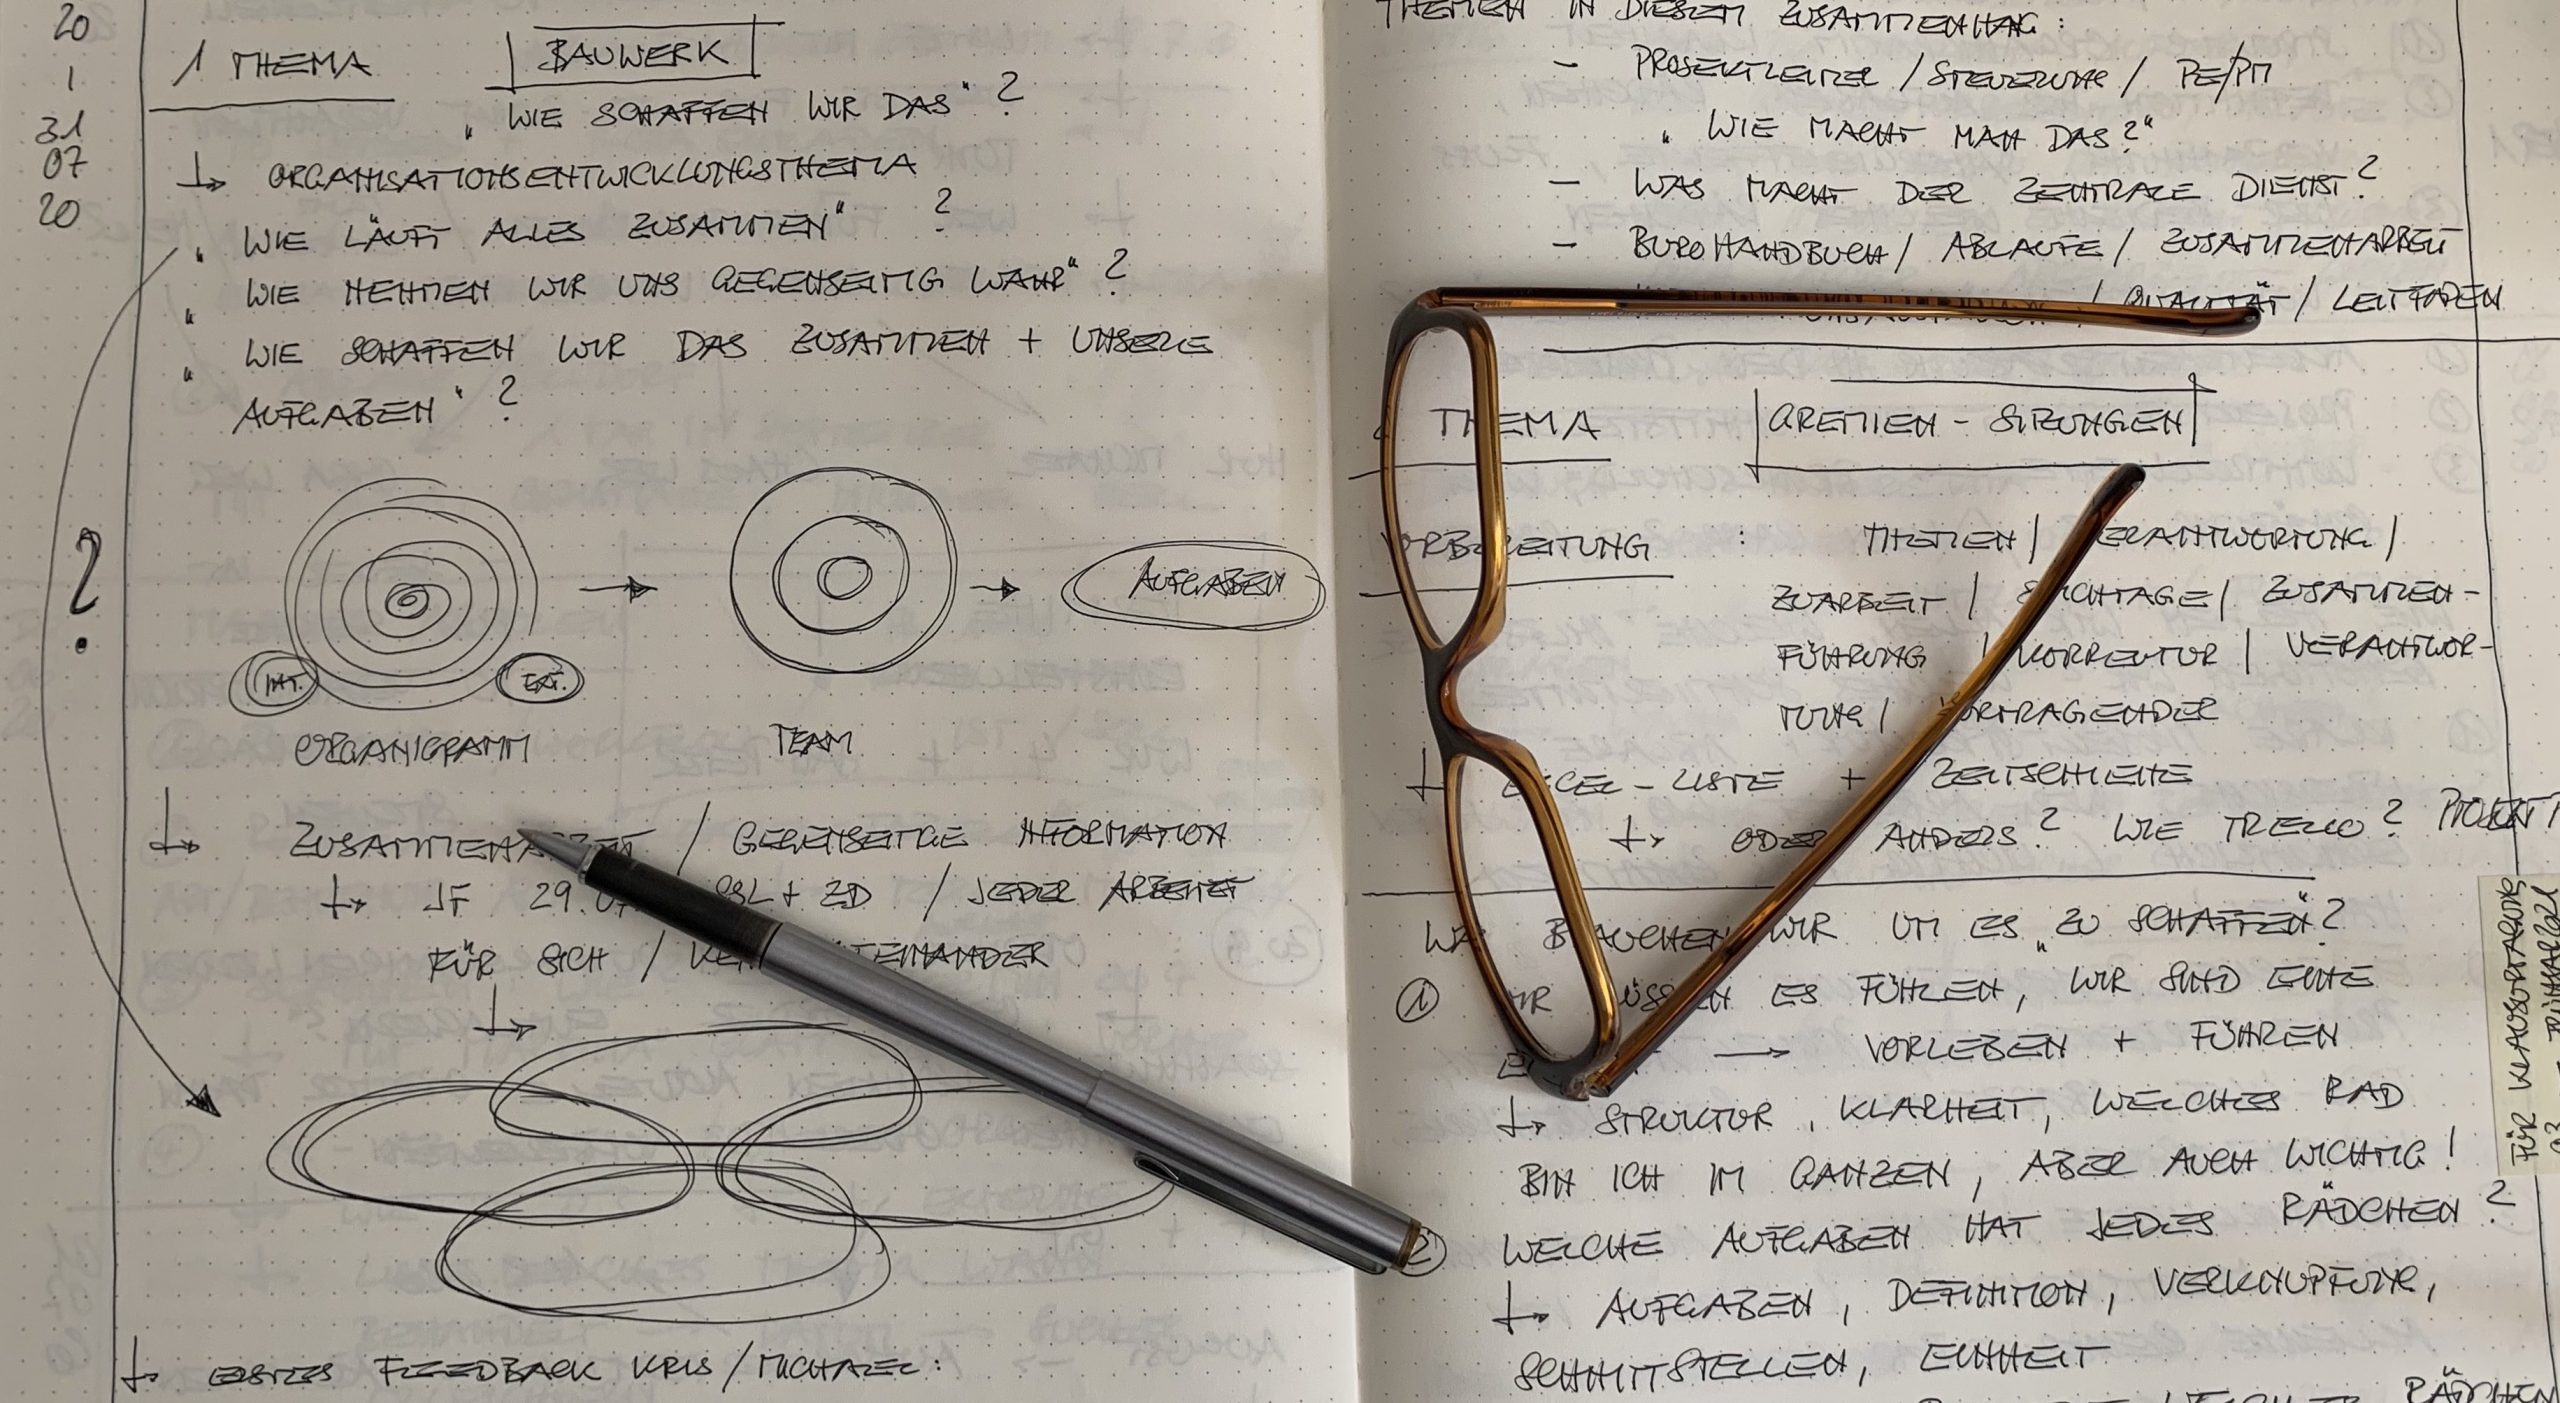 20
1
31
07
20
1 THEMA
BAUWERK
"WIE SCHAFFEN WIR DAS"?
ORGANISATIONSENTWICKLUNGSTHEMA
"WIE LÄUFT ALLES ZUSAMMEN" ?
"WIE NEHMEN WIR UNS GEGENSEITIG WAHR"?
"WIE SCHAFFEN WIR DAS ZUSAMMEN + UNSERE
AUFGABEN"?
?
INT.
EXT.
AUFGABEN
ORGANIGRAMM
TEAM
ZUSAMMENARBEIT / GEGENSEITIGE INFORMATION
JF 29. + ZD / JEDER ARBEITET
FÜR SICH /
ERSTES FEEDBACK KRIS/MICHAEL:
THEMEN IN DIESEM ZUSAMMENHANG:
- PROJEKTLEITER / STEUERUNG / PE/PM
"WIE MACHT MAN DAS?"
- WAS MACHT DER ZENTRALE DIENST?
- BÜROHANDBUCH / ABLÄUFE / ZUSAMMENARBEIT
/ QUALITÄT / LEITFADEN
THEMA
GREMIEN - SITZUNGEN
VORBEREITUNG : THEMEN / VERANTWORTUNG /
ZUARBEIT / STICHTAGE / ZUSAMMEN-
FÜHRUNG / KORREKTUR / VERANTWOR-
TUNG / VORTRAGENDER
EXCEL-LISTE + ZEITSCHIENE
ODER ANDERS? WIE TRELLO? PROJEKT
BRAUCHEN WIR UM ES "ZU SCHAFFEN"?
① WIR MÜSSEN ES FÜHLEN, WIR SIND EINE
→ VORLEBEN + FÜHREN
STRUKTUR, KLARHEIT, WELCHES RAD
BIN ICH IM GANZEN, ABER AUCH WICHTIG!
② WELCHE AUFGABEN HAT JEDES RÄDCHEN?
AUFGABEN, DEFINITION, VERKNÜPFUNG,
SCHNITTSTELLEN, EINHEIT
RÄDCHEN
FÜR KLAUSURTAGUNG